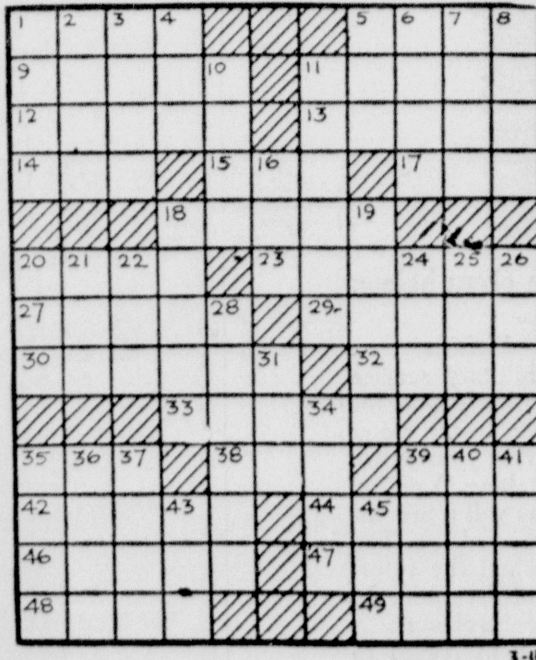 1 2 3 4 5 6 7 8
9 10 11
12 13
14 15 16 17
18 19
20 21 22 23 24 25 26
27 28 29
30 31 32
33 34
35 36 37 38 39 40 41
42 43 44 45
46 47
48 49